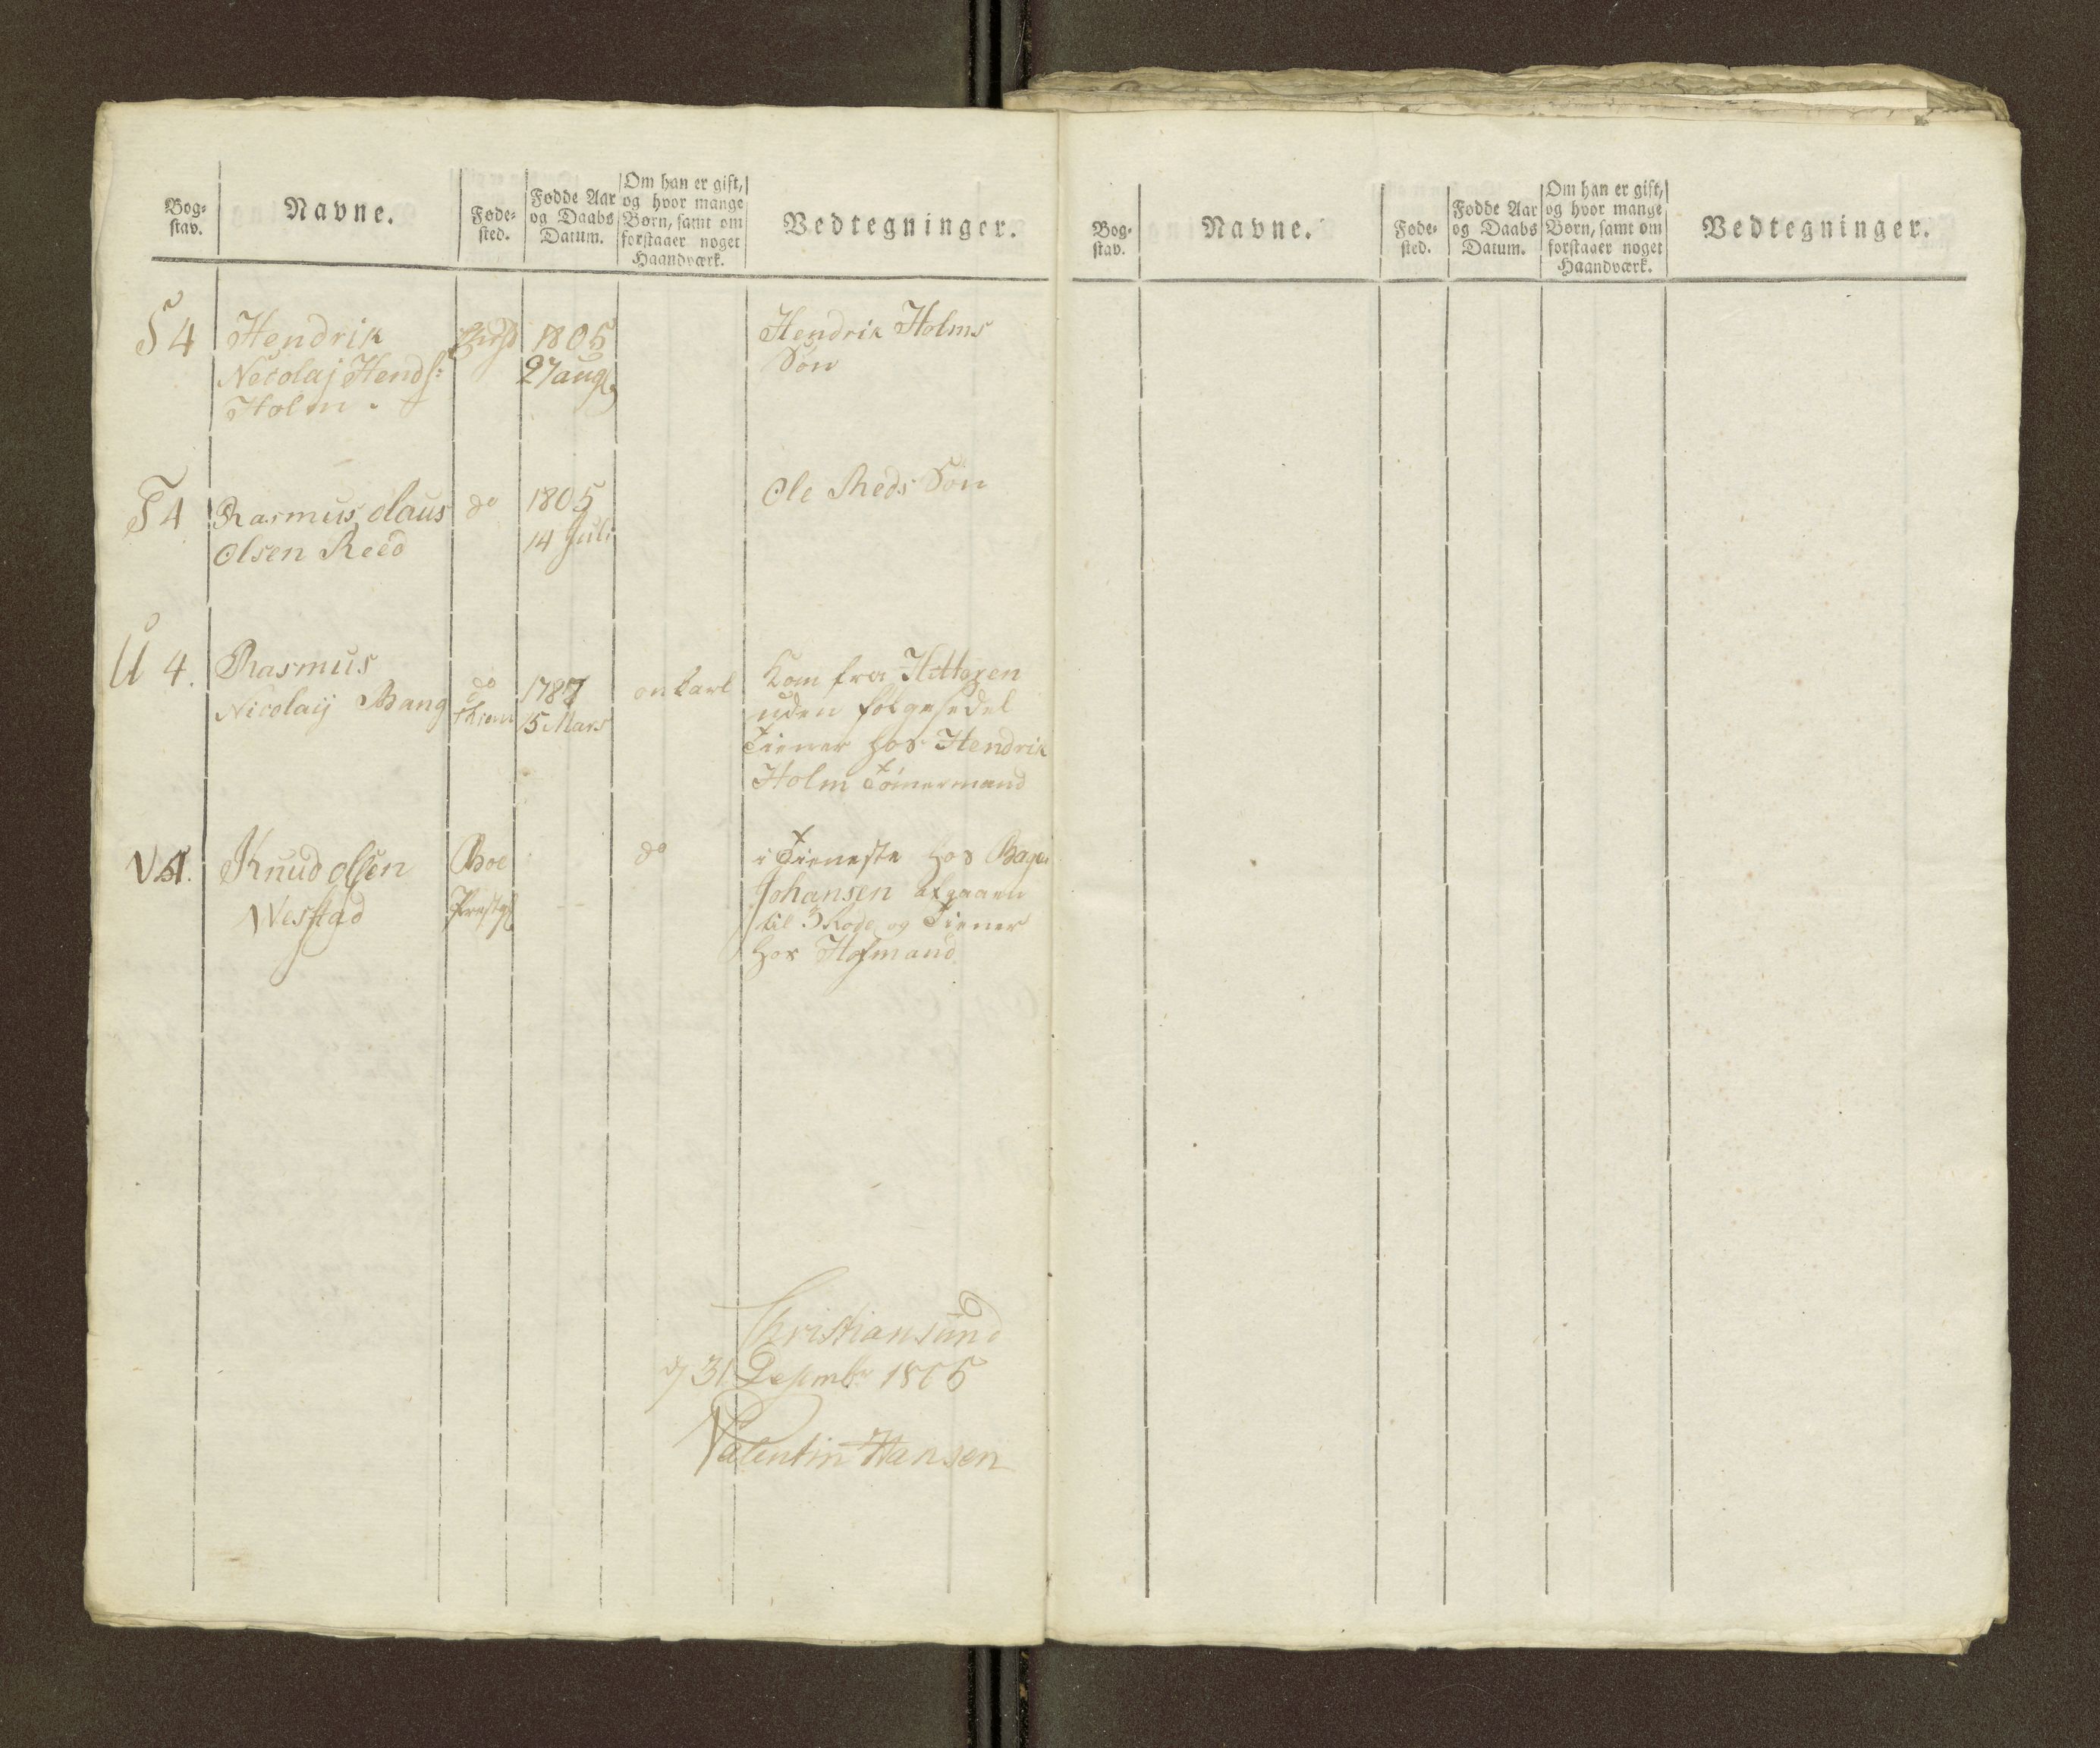 Bog-
stav.
Navne.
Føde-
sted.
Fødde Aar
og Daabs
Datum.
Om han er gift,
og hvor mange
Børn, samt om
forstaaer noget
Haandværk.
Vedtegninger.
S 4
Hendrik
Nicolaj Hends:
Holm.
1805
27 aug
Hendrik Holms
Søn
T 4
Rasmus olaus
Olsen Reed
do
1805
14 Juli
Ole Reds Søn
U 4.
Rasmus
Nicolaij Bang
do
1787
15 Mars
Kom fra Hitteren
uden følgesedel
Tiener hos Hendrik
Holm Tømermand
V 4.
Knud olsen
Westad
Boe
Prestg
do
i Tieneste hos Bager
Johansen afgaaen
til 3 Rode og Tiener
hos Hofmand
Christiansund
d 31 Desembr 1805
Valentin Hansen
Bog-
stav.
Navne.
Føde-
sted.
Fødde Aar
og Daabs
Datum.
Om han er gift,
og hvor mange
Børn, samt om
forstaaer noget
Haandværk.
Vedtegninger.